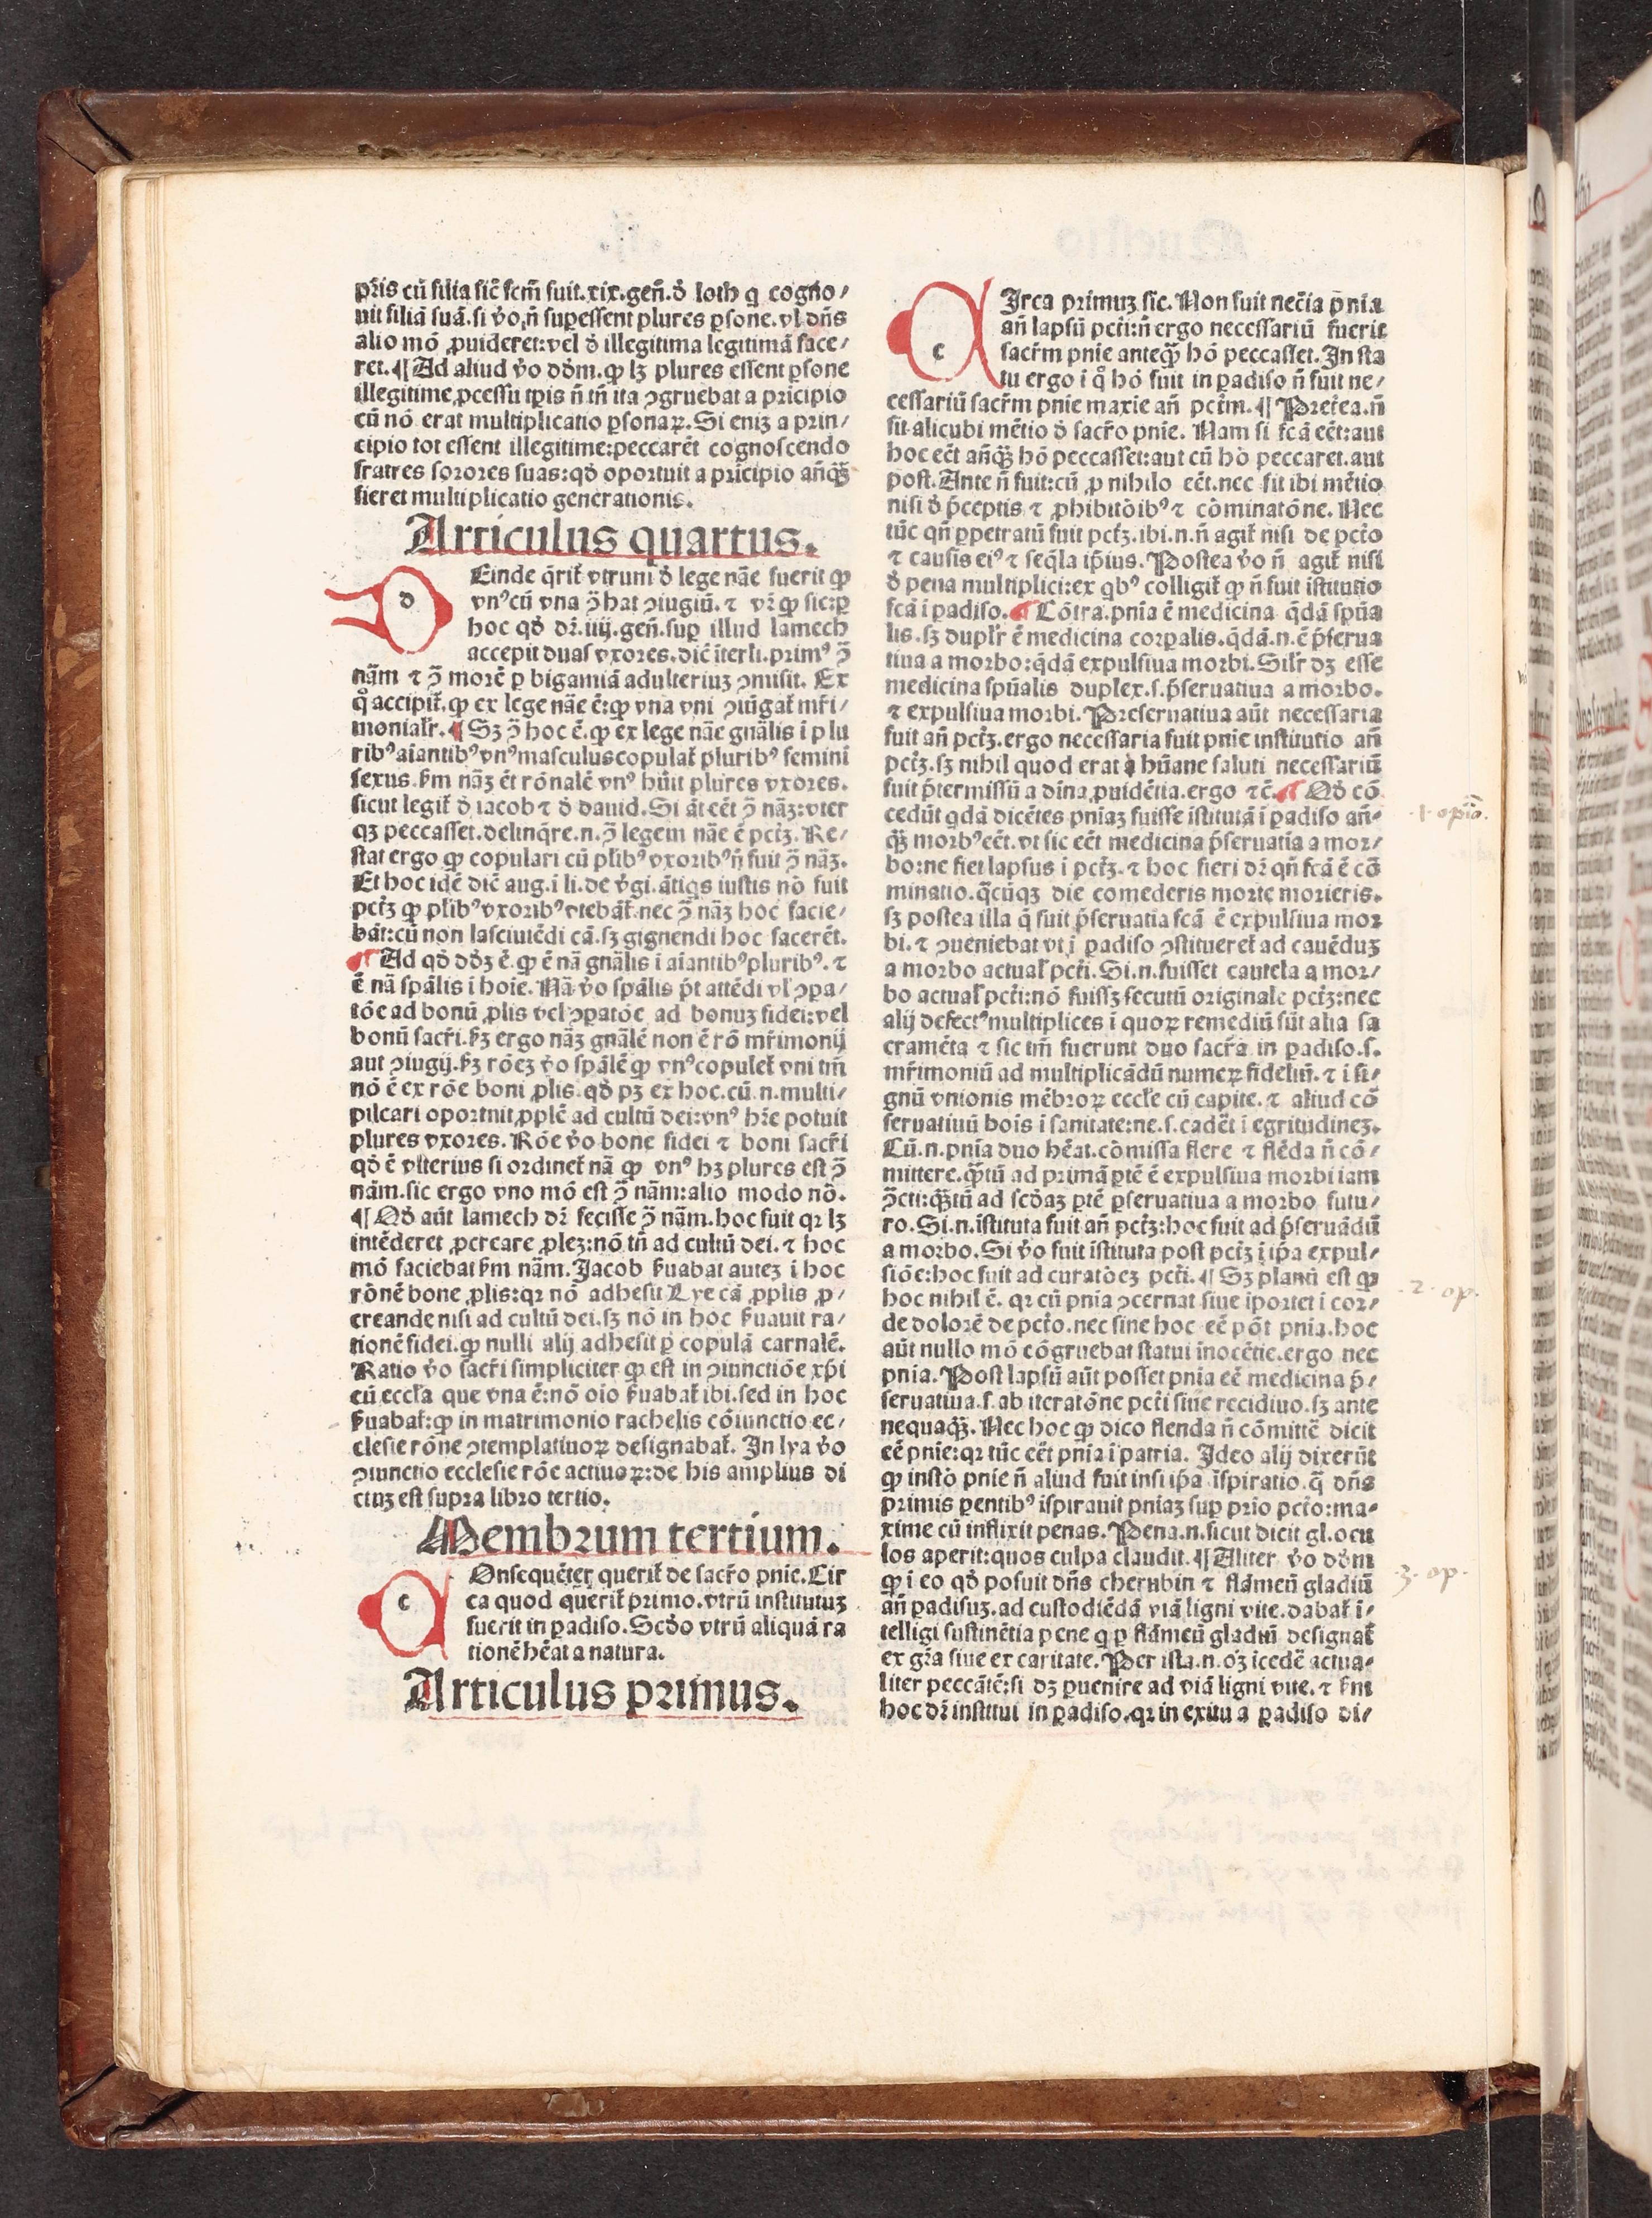 pr̄is cū filia sic̄ scm̄ fuit.xix.geñ.ð loth q cogno/
uit filiā suā.si v̊o,ñ suꝑessent plures ꝑsone.vl dn̄s
alio mō ꝓuideret:vel ð illegitima legitimā face/
ret.¶Ad aliud v̊o dōm.ꝙ lꝫ plures essent ꝑsone
illegitime,ꝓcessu tꝑis ñ tñ ita ꝯgruebat a pricipio
cū nō erat multiplicatio ꝑsonaꝝ.Si enim a prin/
cipio tot essent illegitime:peccarēt cognoscendo
fratres sorores suas:qð oportuit a pricipio añq̄ꝫ
fieret multiplicatio generationis.
Articulus quartus.
d Einde q̄rit̄ vtrum ð lege nāe fuerit ꝙ
vnꝰcū vna ꝯ̄hat ꝯiugiū.⁊ vr̄ ꝙ sic:ꝑ
hoc qð dr̄.iiij.geñ.suꝑ illud lamech
accepit duas vxores.dic̄ īterli.primꝰ ꝯ̄
nām ⁊ ꝯ̄ morē ꝑ bigamiā adulteriuꝫ ꝯmisit. Ex
q̊ accipit̄.ꝙ ex lege nāe ē:ꝙ vna vni ꝯiūgat̄ mr̄i/
monialr̄.¶Sꝫ ꝯ̄ hoc ē.ꝙ ex lege nāe gnālis i plu
ribꝰaiantibꝰvnꝰmasculuscopulat̄ pluribꝰ femini
sexus.ẜm nāꝫ ēt rōnalē vnꝰ hūit plures vxores.
sicut legit̄ ð iacob ⁊ ð dauid.Si āt eēt ꝯ̄ nāꝫ:vter
qꝫ peccasset.delinq̄re.n.ꝯ̄ legem nāe ē pctꝫ. Re/
stat ergo ꝙ copulari cū plībꝰ vxoribꝰñ fuit ꝯ̄ nāꝫ.
Et hoc idē dic̄ aug.i li.de v̊gi.ātiqs iustis nō fuit
pctꝫ ꝙ plībꝰvxoribꝰvtebāt̄.nec ꝯ̄ nāꝫ hoc facie/
bāt:cū non lasciuiēdi cā.sꝫ gignendi hoc facerēt.
¶Ad qð dðꝫ ē.ꝙ ē nā gnālis i aiantibꝰpluribꝰ.⁊
ē nā spālis i hoie. Nā v̊o spālis p̄t attēdi vl̄ ꝯpa/
tōe ad bonū ꝓlis vel ꝯꝑatōe ad bonuꝫ fidei:vel
bonū sacr̄i.ẜꝫ ergo nāꝫ gnālē non ē rō mr̄imonij
aut ꝯiugij.ẜꝫ rōeꝫ v̊o spālē ꝙ vnꝰcopulet̄ vni tm̄
nō ē ex rōe boni ꝓlis.qð pꝫ ex hoc.cū.n.multi/
plicari oportuit ꝓplē ad cultū dei:vnꝰ hr̄e potuit
plures vxores. Rōe v̊o bone fidei ⁊ boni sacr̄i
qð ē vlterius si ordinet̄ nā ꝙ vnꝰ hꝫ plures est ꝯ̄
nām.sic ergo vno mō est ꝯ̄ nām:alio modo nō.
¶Qð aūt lamech dr̄ fecisse ꝯ̄ nām.hoc fuit qꝛ lꝫ
intēderet ꝓcreare ꝓleꝫ:nō tñ ad cultū dei.⁊ hoc
mō faciebat ẜm nām.Jacob ẜuabat auteꝫ i hoc
rōnē bone ꝓlis:qꝛ nō adhesit Lye cā ꝓplis ꝓ/
creande nisi ad cultū dei.sꝫ nō in hoc ẜuauit ra/
tionē fidei.ꝙ nulli alij adhesit ꝑ copulā carnalē.
Ratio v̊o sacr̄i simpliciter ꝙ est in ꝯiunctiōe xp̄i
cū eccl̄a que vna ē:nō oīo ẜuabat̄ ibi.sed in hoc
ẜuabat̄:ꝙ in matrimonio rachelis cōiunctio ec/
clesie rōne ꝯtemplatiuoꝝ designabat̄. In lya v̊o
ꝯiunctio ecclesie rōe actiuoꝝ:de his amplius di
ctuꝫ est supra libro tertio.
Membrum tertium.
c Onsequēter querit̄ de sacr̄o pnie.Cir
ca quod querit̄ primo.vtrū institutuꝫ
fuerit in ꝑadiso.Scðo vtrū aliquā ra
tionē hēat a natura.
Articulus primus.
c Jrca primuꝫ sic.Non fuit nec̄ia pnīa
añ lapsū pcti:ñ ergo necessariū fuerit
sacr̄m pnie anteqꝫ̄ hō peccasset.In sta
tu ergo i q̊ hō fuit in ꝑadiso ñ fuit ne/
cessariū sacr̄m pnie maxie añ pctm̄.¶Preterea.ñ
fit alicubi mētio ð sacr̄o pnie. Nam si fcā eēt:aut
hoc eēt añq̄ꝫ hō peccasset:aut cū hō peccaret.aut
post.Ante ñ fuit:cū ꝓ nihilo eēt.nec fit ibi mētio
nisi ð p̄ceptis ⁊ ꝓhibitōibꝰ⁊ cōminatōne. Nec
tūc qñ ꝑpetratū fuit pctꝫ.ibi.n.ñ agit̄ nisi de pcto
⁊ causis eiꝰ ⁊ seq̄la ip̄ius.Postea v̊o ñ agit̄ nisi
ð pena multiplici:ex qbꝰ colligit̄ ꝙ ñ fuit īstitutio
fcā i ꝑadiso.¶Cōtra.pnīa ē medicina q̄dā spūa
lis.sꝫ duplr̄ ē medicina corꝑalis.q̄dā.n.ē p̄serua
tiua a morbo:q̄dā expulsiua morbi.Silr̄ dꝫ esse
medicina spūalis duplex.s.p̄seruatiua a morbo.
⁊ expulsiua morbi.Preseruatiua aūt necessaria
fuit añ pctꝫ.ergo necessaria fuit pnie institutio añ
pctꝫ.sꝫ nihil quod erat hūane saluti necessariū
fuit p̄termissū a diīna ꝓuidētia.ergo ⁊c̄.¶Qð cō
cedūt qdā dicētes pniaꝫ fuisse īstitutā i ꝑadiso añ-
q̄ꝫ morbꝰeēt.vt sic eēt medicina p̄seruatīa a mor/
bo:ne fiet lapsus i pctꝫ.⁊ hoc fieri dr̄ qñ fcā ē cō
minatio.q̄cūqꝫ die comederis morte morieris.
sꝫ postea illa q̄ fuit p̄seruatīa fcā ē expulsiua mor
bi.⁊ ꝯueniebat vt i ꝑadiso ꝯstitueret̄ ad cauēduꝫ
a morbo actuaľ pcti.Si.n.fuisset cautela a mor/
bo actuaľ pcti:nō fuissꝫ secutū originale pctꝫ:nec
alij defectꝰmultiplices i quoꝝ remediū sūt alia sa
cramēta ⁊ sic tm̄ fuerunt duo sacr̄a in ꝑadiso.s.
mr̄imoniū ad multiplicādū numeꝝ fideliū.⁊ i si/
gnū vnionis mēbroꝝ eccl̄e cū capite.⁊ aliud cō
seruatiuū hoīs i sanitate:ne.s.cadēt i egritudineꝫ.
Cū.n.pnīa duo hēat.cōmissa flere ⁊ flēda ñ cō/
mittere.q̄ꝫtū ad primā ꝑtē ē expulsiua morbi iam
ꝯ̄cti:q̄ꝫtū ad scðaꝫ ꝑtē ꝑseruatiua a morbo futu/
ro.Si.n.īstituta fuit añ pctꝫ:hoc fuit ad p̄seruādū
a morbo.Si v̊o fuit īstituta post pctꝫ i ip̄a expul/
siōe:hoc fuit ad curatōeꝫ pcti.¶Sꝫ planū est ꝙ
hoc nihil ē. qꝛ cū pnia ꝯcernat siue iportet i cor/
de dolorē de pcto.nec sine hoc eē pōt pnia.hoc
aūt nullo mō cōgruebat statui inocētie.ergo nec
pnia.Post lapsū aūt posset pnia eē medicina p̄/
seruatiua.s.ab iteratōne pcti siue recidiuo.sꝫ ante
nequaq̄ꝫ.Nec hoc ꝙ dico flenda ñ cōmittē dicit
eē pnie:qꝛ tūc eēt pnia i patria. Ideo alij dixerūt
ꝙ instō pnie ñ aliud fuit nisi ip̄a īspiratio.q̄ dn̄s
primis ꝑentibꝰ īspirauit pniaꝫ suꝑ prio pcto:ma-
xime cū inflixit penas.Pena.n.sicut dicit gl.ocu
los aperit:quos culpa claudit.¶Aliter v̊o dōm
ꝙ i eo qð posuit dn̄s cherubin ⁊ flāmeū gladiū
añ ꝑadisuꝫ.ad custodiēdā viā ligni vite.dabat̄ i/
telligi sustinētia pene q ꝑ flāmeū gladiū designat̄
ex gr̄a siue ex caritate.Per ista.n.oꝫ icedē actua-
liter peccātē:si dꝫ ꝑuenire ad viā ligni vite.⁊ ẜm
hoc dr̄ institui in ꝑadiso.qꝛ in exitu a ꝑadiso di/
·1· opio.
·2· op.
·3· op.